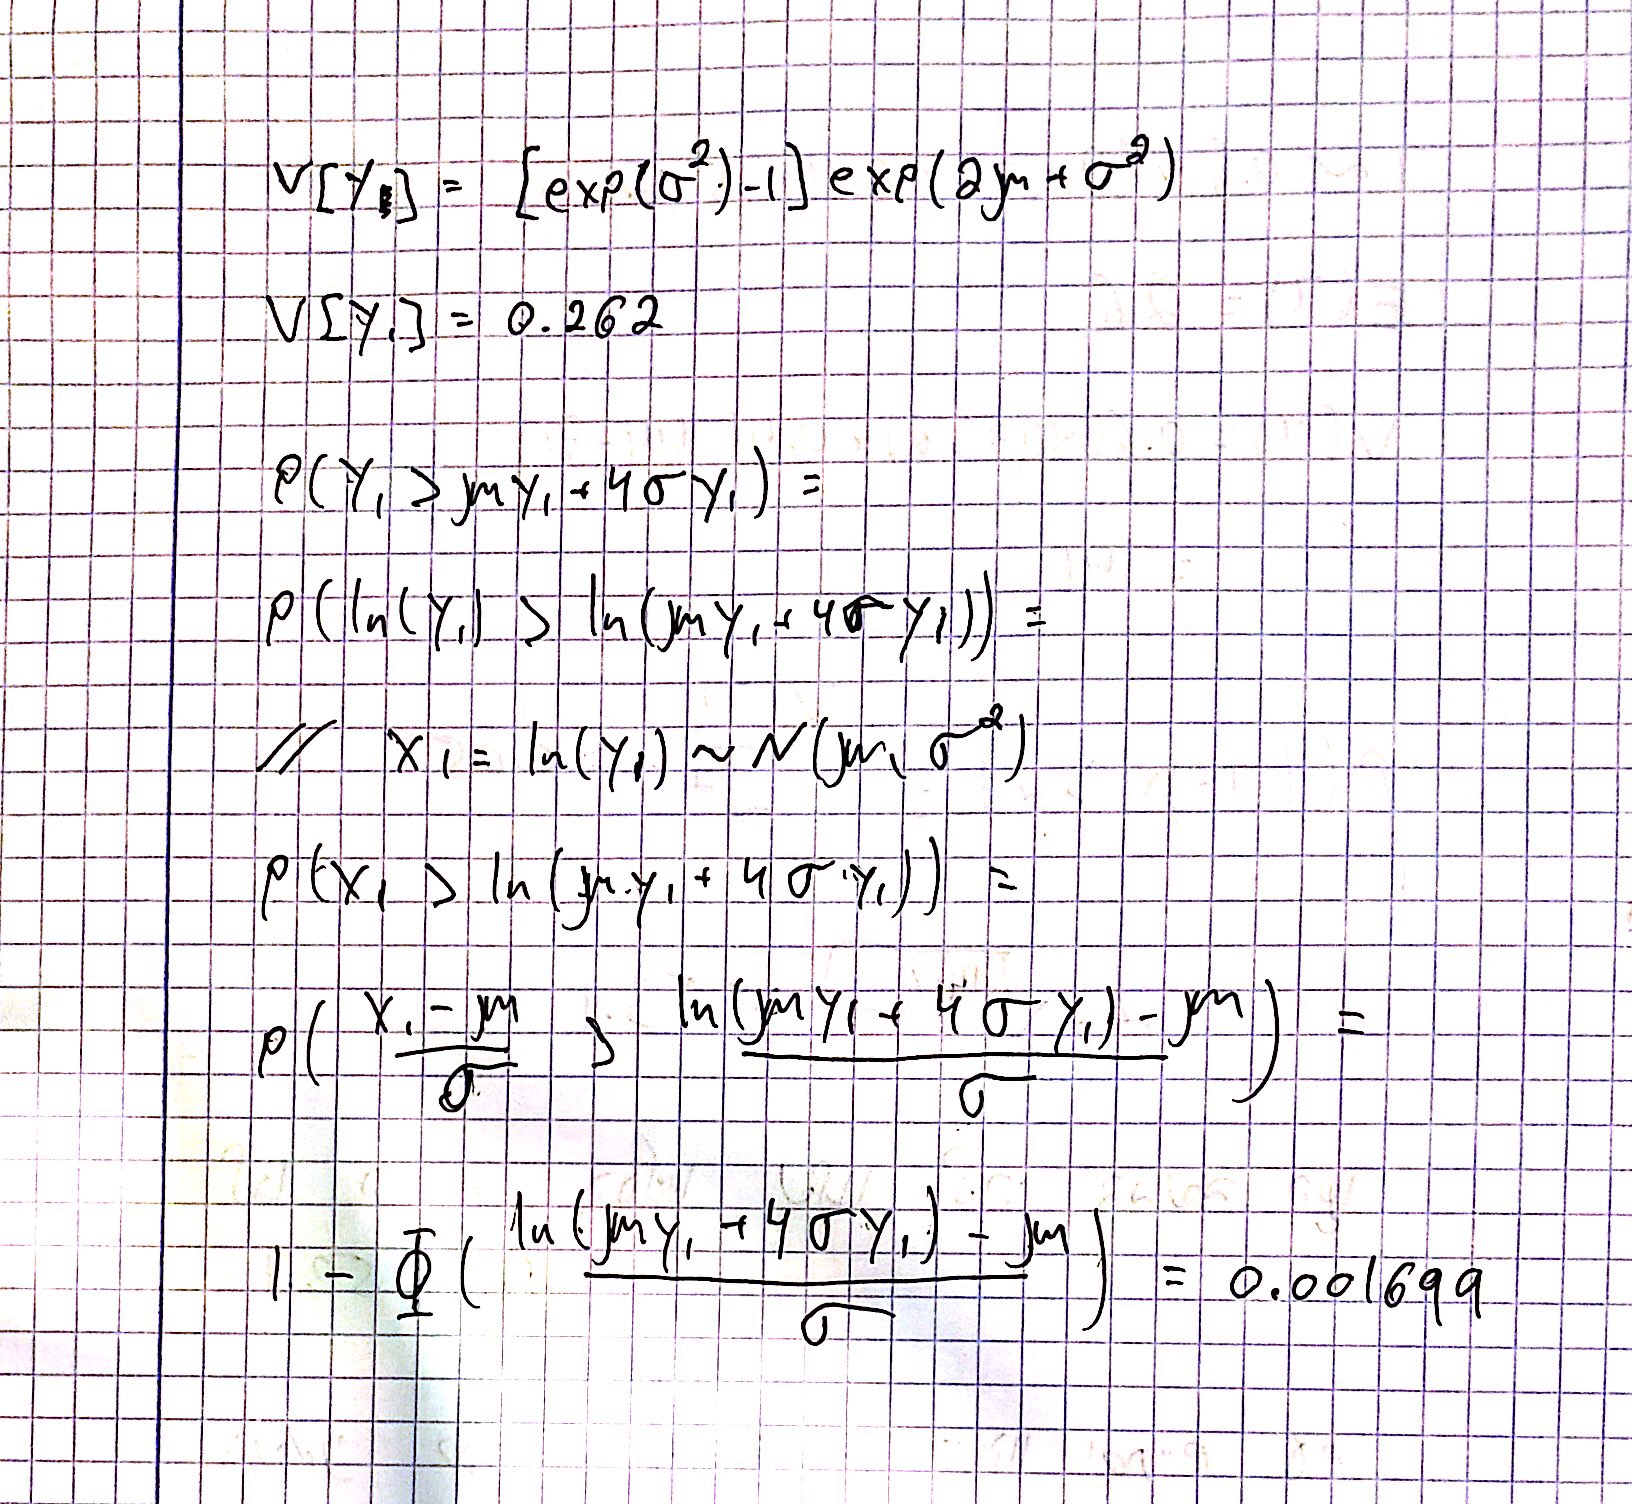 V[Y₁] = [exp(σ²)-1] exp(2μ + σ²)
V[Y₁] = 0.262
P(Y₁ > μy₁ + 4σy₁) =
P(ln(Y₁) > ln(μy₁ + 4σy₁)) =
// X₁ = ln(Y₁) ~ N(μ, σ²)
P(X₁ > ln(μy₁ + 4σy₁)) =
P((X₁ - μ)/σ > (ln(μy₁ + 4σy₁) - μ)/σ) =
1 - Φ((ln(μy₁ + 4σy₁) - μ)/σ) = 0.001699